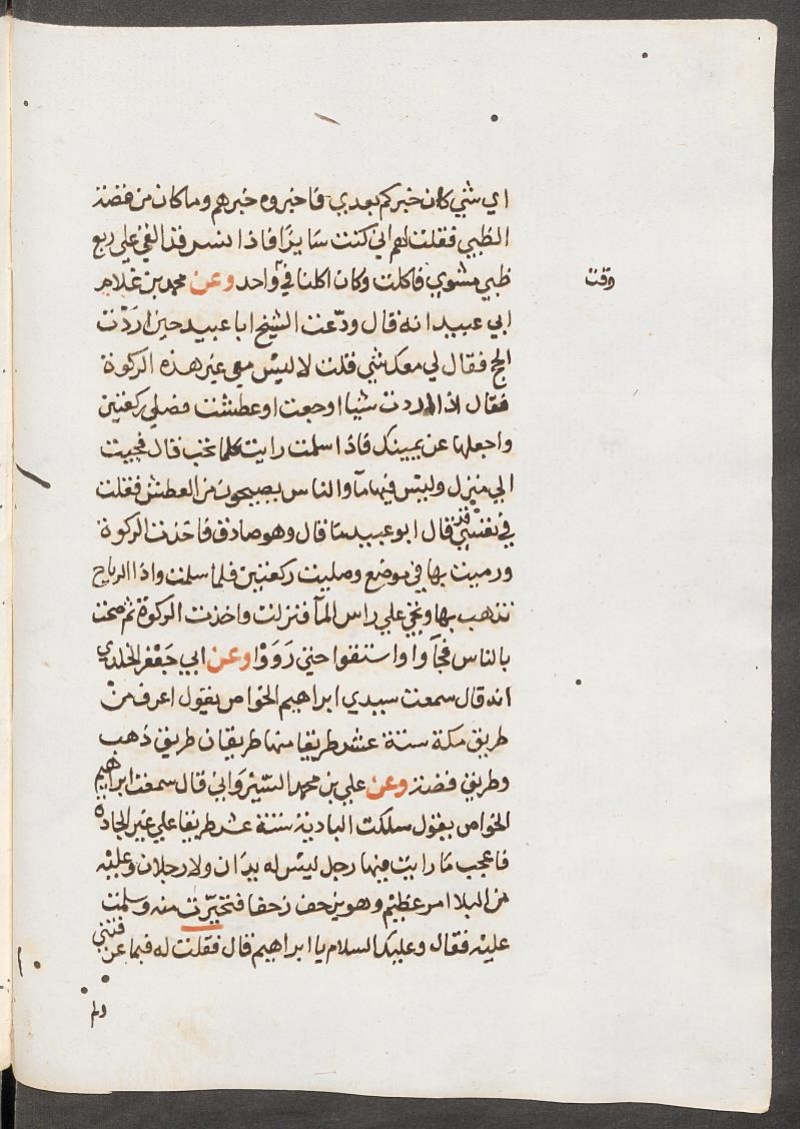 اي شي كان خبركم بعدي فاخبروه خبرهم وما كان من قصة
الظبي فقلت لهم اني كنت سايرا فاذا بنسر قد القي علي ربع
ظبي مشوي فاكلت وكان اكلنا في واحد وعن محمد بن غلام
وقت
ابي عبيد انه قال ودعت الشيخ ابا عبيد حين اردت
الحج فقال لي معك شي قلت لا ليس معي غير هذه الركوة
فقال اذا اردت شيا او جعت او عطشت فصلي ركعتين
واجعلها عن يمينك فاذا سلمت رايت كلما تحب قال فجيت
الي منزل وليس فيها ماء والناس يصيحون من العطش فقلت
في نفسي قد قال ابو عبيد ما قال وهو صادق فاخذت الركوة
ورميت بها في موضع وصليت ركعتين فلما سلمت واذا الرياح
تذهب بها وتجي علي راس الماء فنزلت واخذت الركوة ثم صحت
بالناس فجاوا واستقوا حتي رووا وعن ابي جعفر الخلدي
انه قال سمعت سيدي ابراهيم الخواص يقول اعرف من
طريق مكة ستة عشر طريقا منها طريقان طريق ذهب
وطريق فضة وعن علي بن محمد الشيرواني قال سمعت ابراهيم
الخواص يقول سلكت البادية ستة عشر طريقا علي غير الجادة
فاعجب ما رايت فيها رجل ليس له يدان ولا رجلان وعليه
من البلا امر عظيم وهو يزحف زحفا فتحيرت منه وسلمت
عليه فقال وعليك السلام يا ابراهيم قال فقلت له فبما عرفتني
ولم